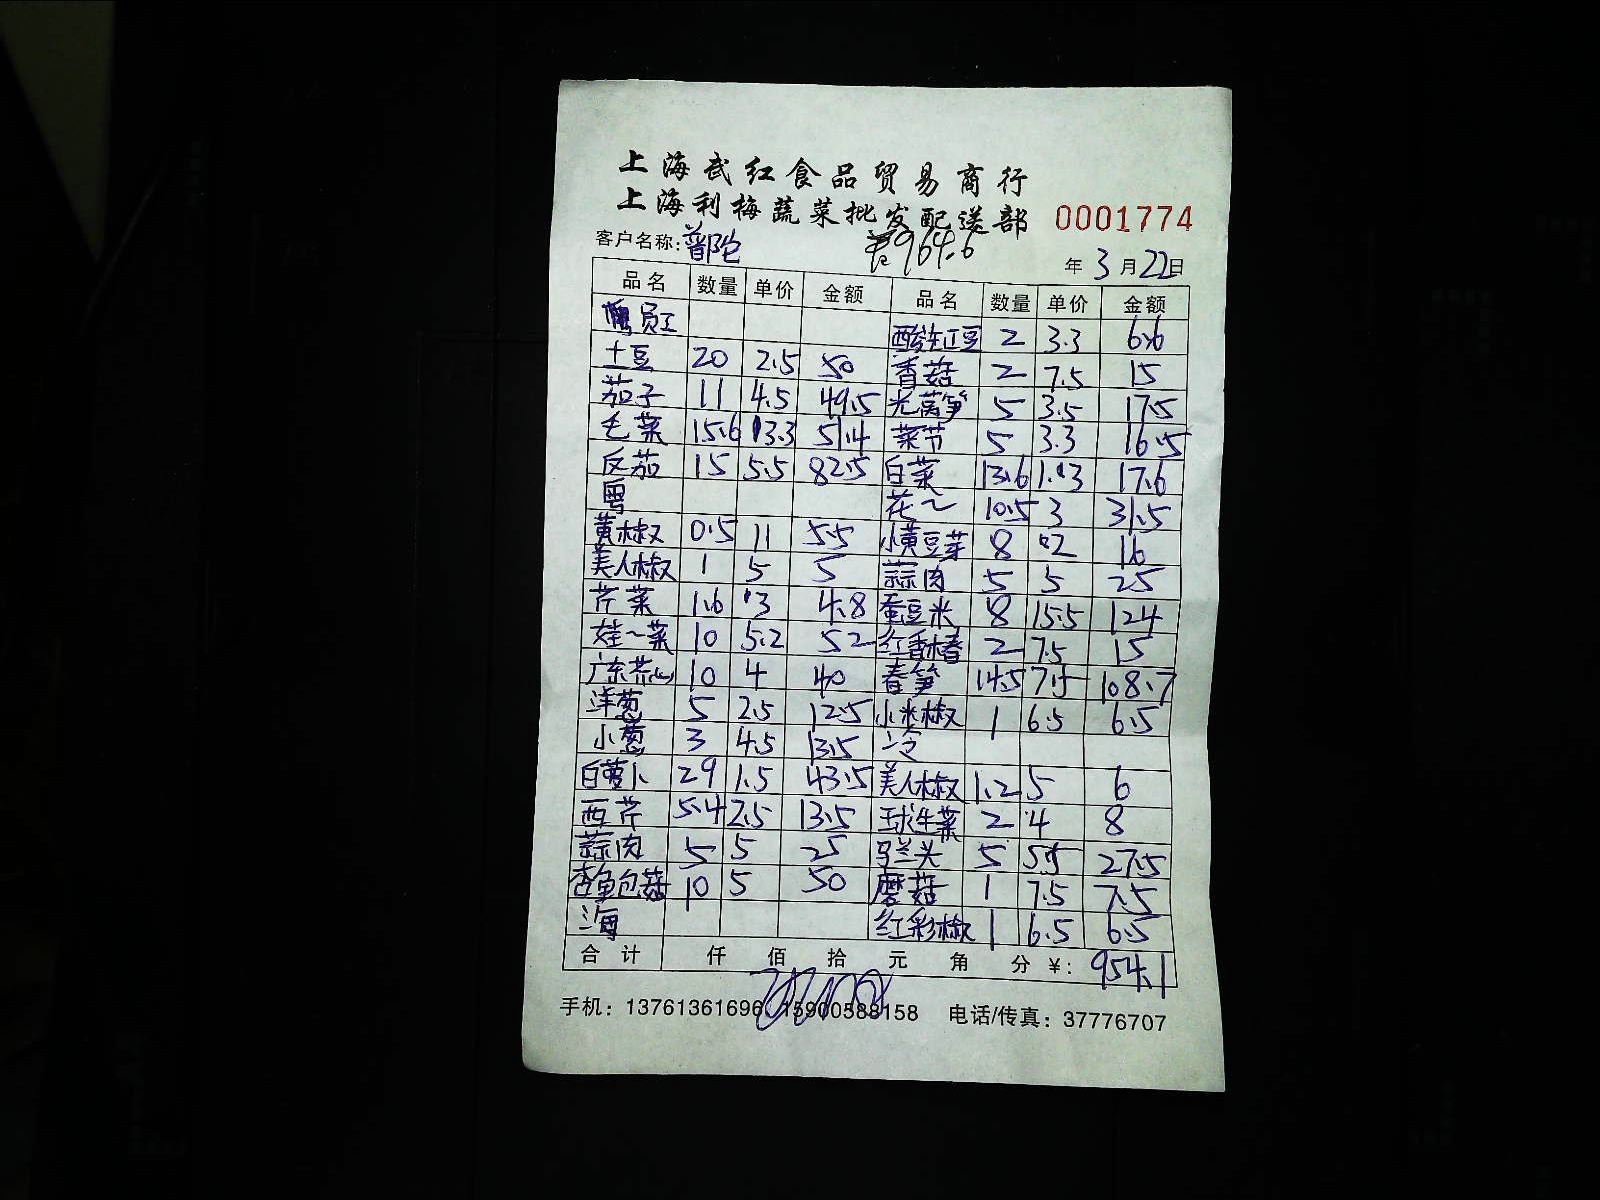 上海武红食品贸易商行
上海利梅蔬菜批发配送部 0001774
客户名称:普陀 964.6 年3月22日
品名 数量 单价 金额 品名 数量 单价 金额
员工 酸豇豆 2 3.3 6.6
土豆 20 2.5 50 香菇 2 7.5 15
茄子 11 4.5 49.5 光莴笋 5 3.5 17.5
毛菜 15.6 3.3 51.4 菜节 5 3.3 16.5
反茄 15 5.5 82.5 白菜 13.6 1.3 17.6
粤 花~ 10.5 3 31.5
黄椒 0.5 11 5.5 小黄豆芽 8 2 16
美人椒 1 5 5 蒜肉 5 5 25
芹菜 1.6 3 4.8 蚕豆米 8 15.5 124
娃~菜 10 5.2 52 红香椿 2 7.5 15
广东菜心 10 4 40 春笋 14.5 7.5 108.7
洋葱 5 2.5 12.5 小米椒 1 6.5 6.5
小葱 3 4.5 13.5 冷
白萝卜 29 1.5 43.5 美人椒 1.2 5 6
西芹 5.4 2.5 13.5 球生菜 2 4 8
蒜肉 5 5 25 马兰头 5 5.5 27.5
杏鲍菇 10 5 50 磨菇 1 7.5 7.5
海 红彩椒 1 6.5 6.5
合计 仟 佰 拾 元 角 分 ¥: 954.1
手机: 13761361696、15900588158 电话/传真: 37776707